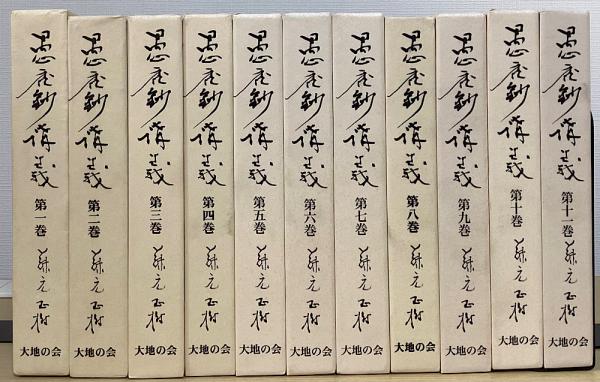 愚禿鈔講義
第一巻
藤元正樹
大地の会
愚禿鈔講義
第二巻
藤元正樹
大地の会
愚禿鈔講義
第三巻
藤元正樹
大地の会
愚禿鈔講義
第四巻
藤元正樹
大地の会
愚禿鈔講義
第五巻
藤元正樹
大地の会
愚禿鈔講義
第六巻
藤元正樹
大地の会
愚禿鈔講義
第七巻
藤元正樹
大地の会
愚禿鈔講義
第八巻
藤元正樹
大地の会
愚禿鈔講義
第九巻
藤元正樹
大地の会
愚禿鈔講義
第十巻
藤元正樹
大地の会
愚禿鈔講義
第十一巻
藤元正樹
大地の会